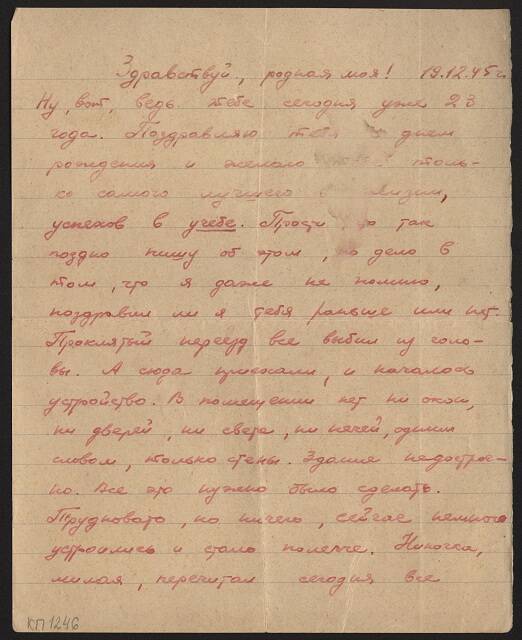 Здравствуй, родная моя! 19.12.45 г.
Ну, вот, ведь тебе сегодня уже 23
года. Поздравляю тебя днем
рождения и желаю толь-
ко самого лучшего в жизни,
успехов в учебе. Прости так
поздно пишу об этом, но дело в
том, что я даже не помню,
поздравил ли я тебя раньше или нет.
Проклятый переезд все выбил из голо-
вы. А сюда приехали, и началось
устройство. В помещении нет ни окон,
ни дверей, ни света, ни печей, одним
словом, только стены. Здание недострое-
но. Все это нужно было сделать.
Трудновато, но ничего, сейчас немного
устроились и стало полегче. Ниночка,
милая, перечитал сегодня все
КП 1246